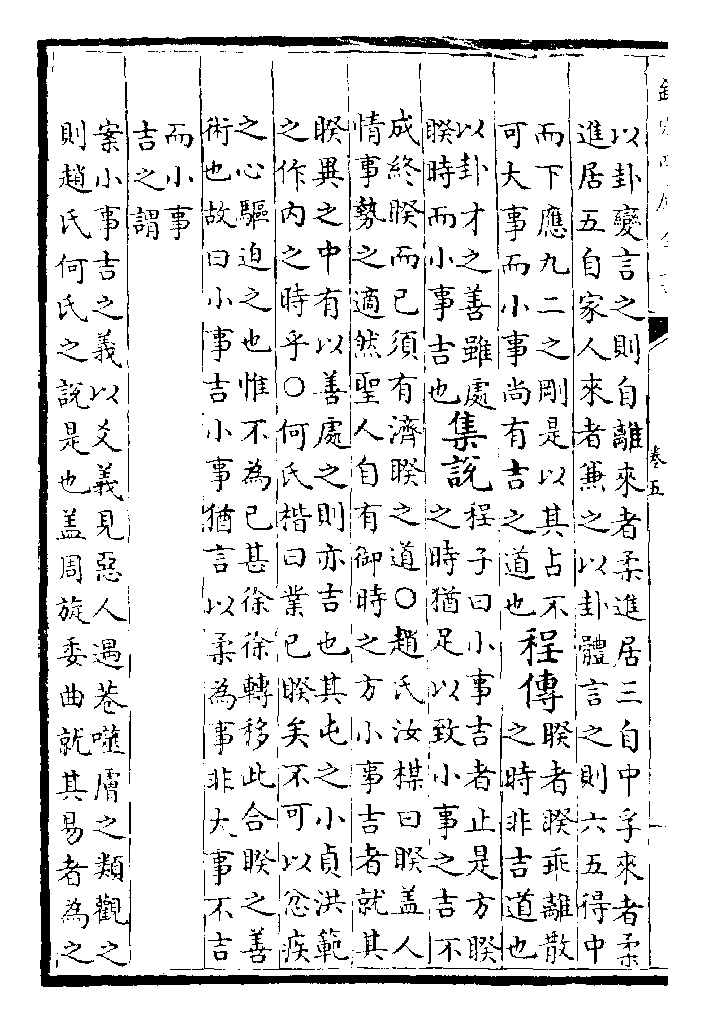 卷五
以卦變言之則自離來者柔進居三自中孚來者柔
進居五自家人來者兼之以卦體言之則六五得中
而下應九二之剛是以其占不
可大事而小事尚有吉之道也
程傳
睽者睽乖離散
之時非吉道也
以卦才之善雖處
睽時而小事吉也
集說
程子曰小事吉者止是方睽
之時猶足以致小事之吉不
成終睽而已須有濟睽之道○趙氏汝楳曰睽盖人
情事勢之適然聖人自有御時之方小事吉者就其
睽異之中有以善處之則亦吉也其屯之小貞洪範
之作內之時乎○何氏楷曰業已睽矣不可以忿疾
之心驅迫之也惟不為已甚徐徐轉移此合睽之善
術也故曰小事吉小事猶言以柔為事非大事不吉
而小事
吉之謂
案小事吉之義以爻義見惡人遇巷噬膚之類觀之
則趙氏何氏之說是也盖周旋委曲就其易者為之